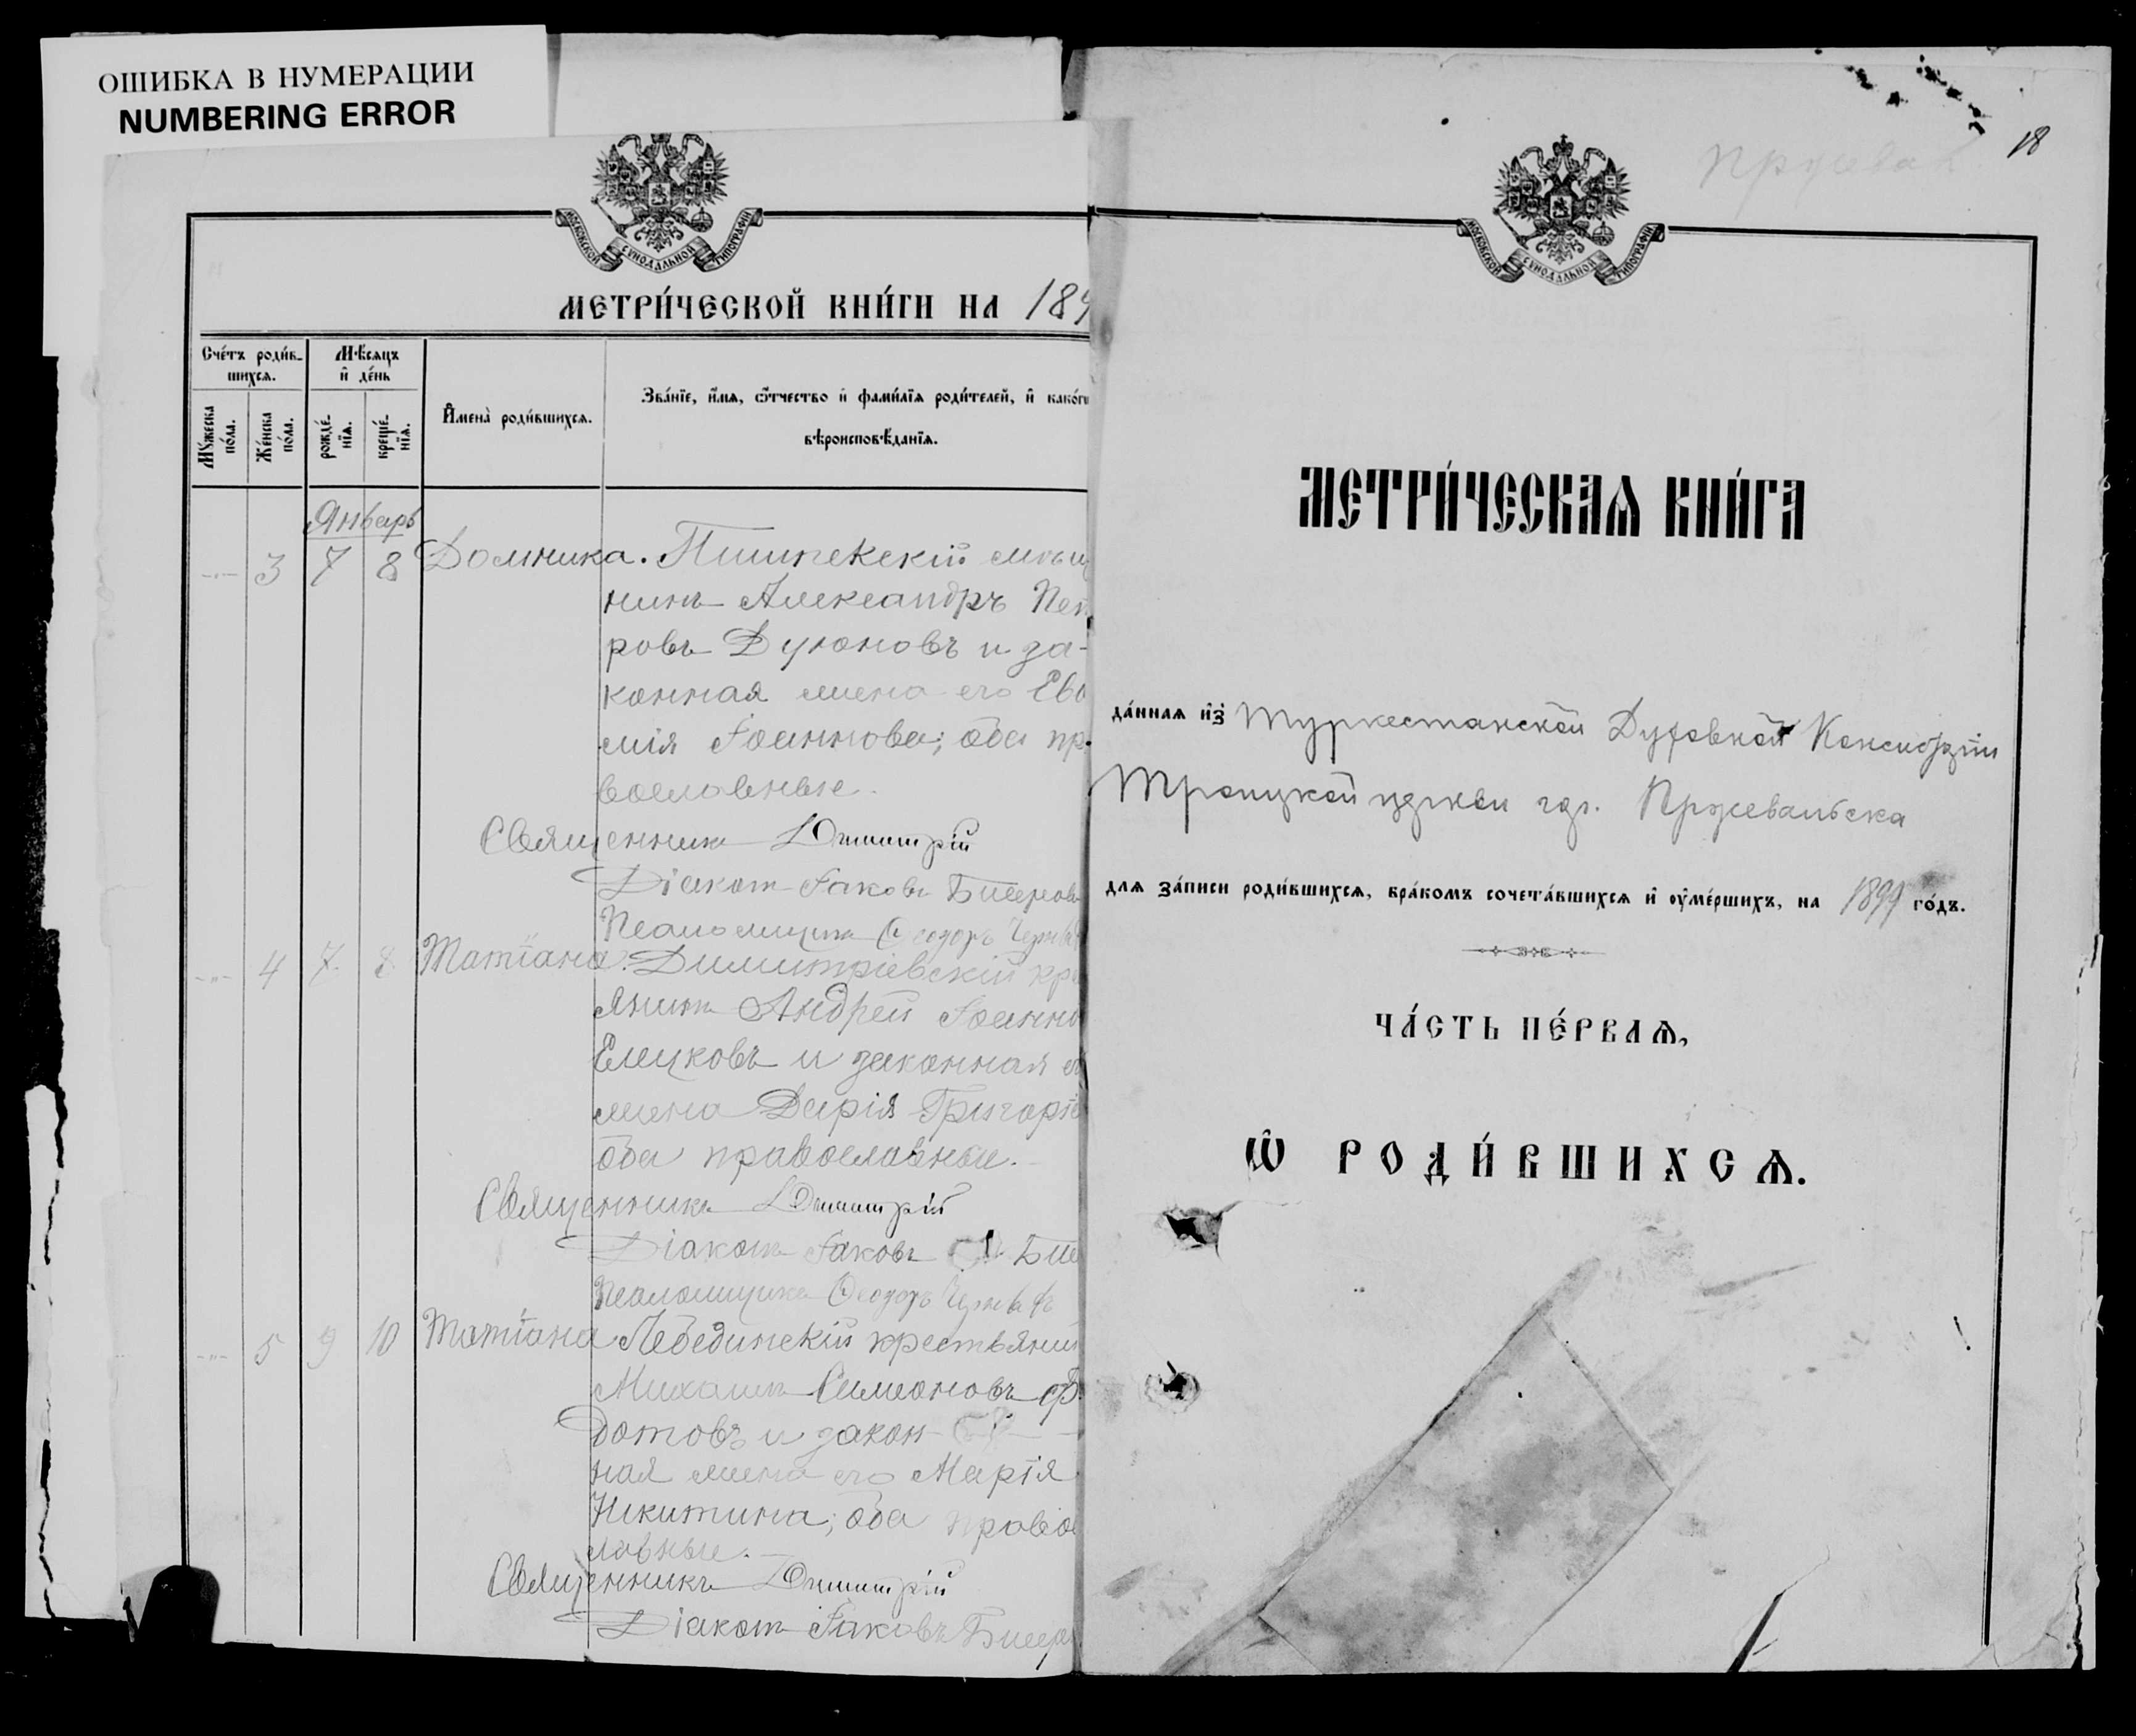 ОШИБКА В НУМЕРАЦИИ
NUMBERING ERROR
МОСКОВСКОЙ СѴНОДАЛЬНОЙ ТИПОГРАФІИ
МЕТРИ́ЧЕСКОЙ КНИ́ГИ НА 189
Сче́тъ роди́в-
шихсѧ.
Мѣсѧцъ
и҆ де́нь
Мꙋ́жеска
по́ла.
Же́нска
по́ла.
рожде́-
нїѧ.
креще́-
нїѧ.
И҆мена̀ роди́вшихсѧ.
Зва́нїе, и҆́мѧ, ѻ҆́тчество и҆ фами́лїѧ роди́телей, и҆ како́гѡ
вѣроисповѣ́данїѧ.
Январь
3 7 8 Домника. Пишпекскій мѣщ
нинъ Александръ Пет
ровъ Дуюновъ и за-
конная жена его Евѳ
мія Іоаннова; оба пр
вославные.
Священникъ Димитрій
Діаконъ Іаковъ Бисеровъ
Псаломщикъ Ѳеодоръ
4 7 8 Татіана. Димитріевскій кре
янинъ Андрей Іоанно
Елецковъ и законная е
жена Дарія Григоріе
оба православные.
Священникъ Димитрій
Діаконъ Іаковъ Бисе
Псаломщикъ Ѳеодоръ
5 9 10 Татіана Лебединскій крестьянин
Михаилъ Симеоновъ Ѳ
дотовъ и закон-
ная жена его Марія
Никитина; оба правос
лавные.
Священникъ Димитрій
Діаконъ Іаковъ Бисеро
18
Пржевал
МОСКОВСКОЙ СѴНОДАЛЬНОЙ ТИПОГРАФІИ
МЕТРИ́ЧЕСКАѦ КНИ́ГА
да́ннаѧ и҆з̾ Туркестанской Духовной Консисторіи
Троицкой церкви гор. Пржевальска
длѧ за́писи роди́вшихсѧ, бра́комъ сочета́вшихсѧ и҆ ᲂу҆ме́ршихъ, на 1899 го́дъ.
ЧА́СТЬ ПЕ́РВАѦ,
Ѡ҆ РОДИ́ВШИХСѦ.